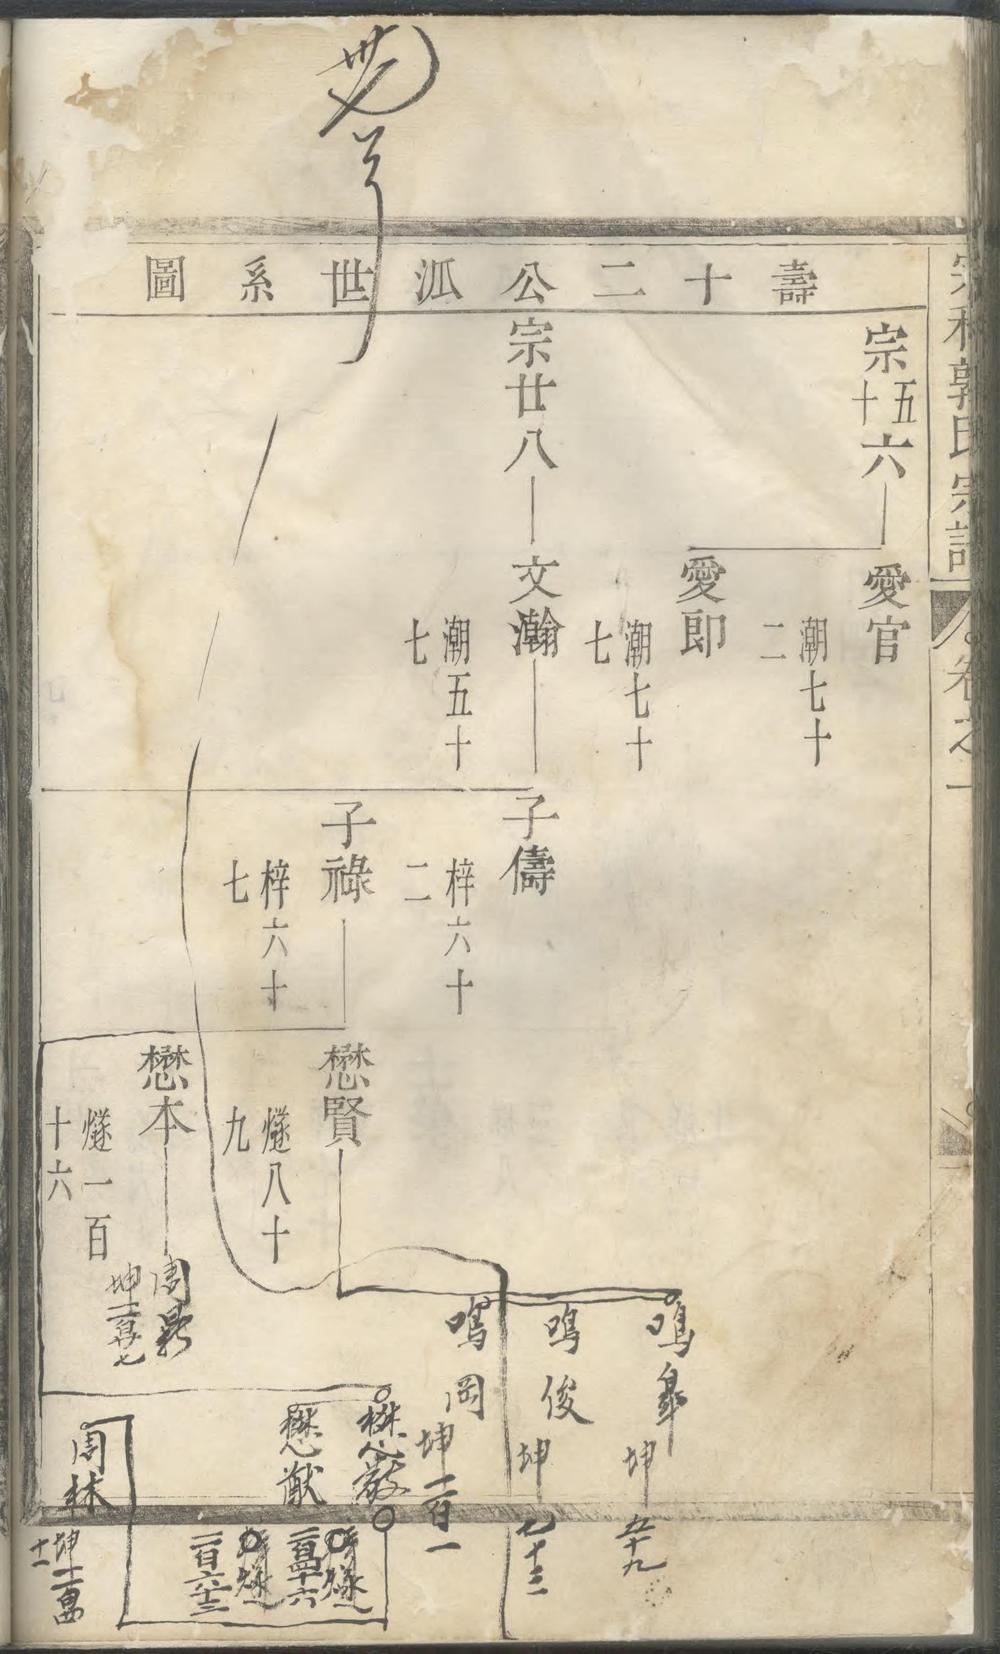 宗和郭氏宗譜
卷之一
壽十二公派世系圖
宗五十六
愛官
潮七十二
愛即
潮七十七
宗廿八
文瀚
潮五十七
子儔
梓六十二
子祿
梓六十七
懋賢
燧八十九
懋本
燧一百十六
鳴皋
坤五十九
鳴俊
坤九十三
鳴岡
坤一百一
周
坤
懋敬
懋猷
周林
坤